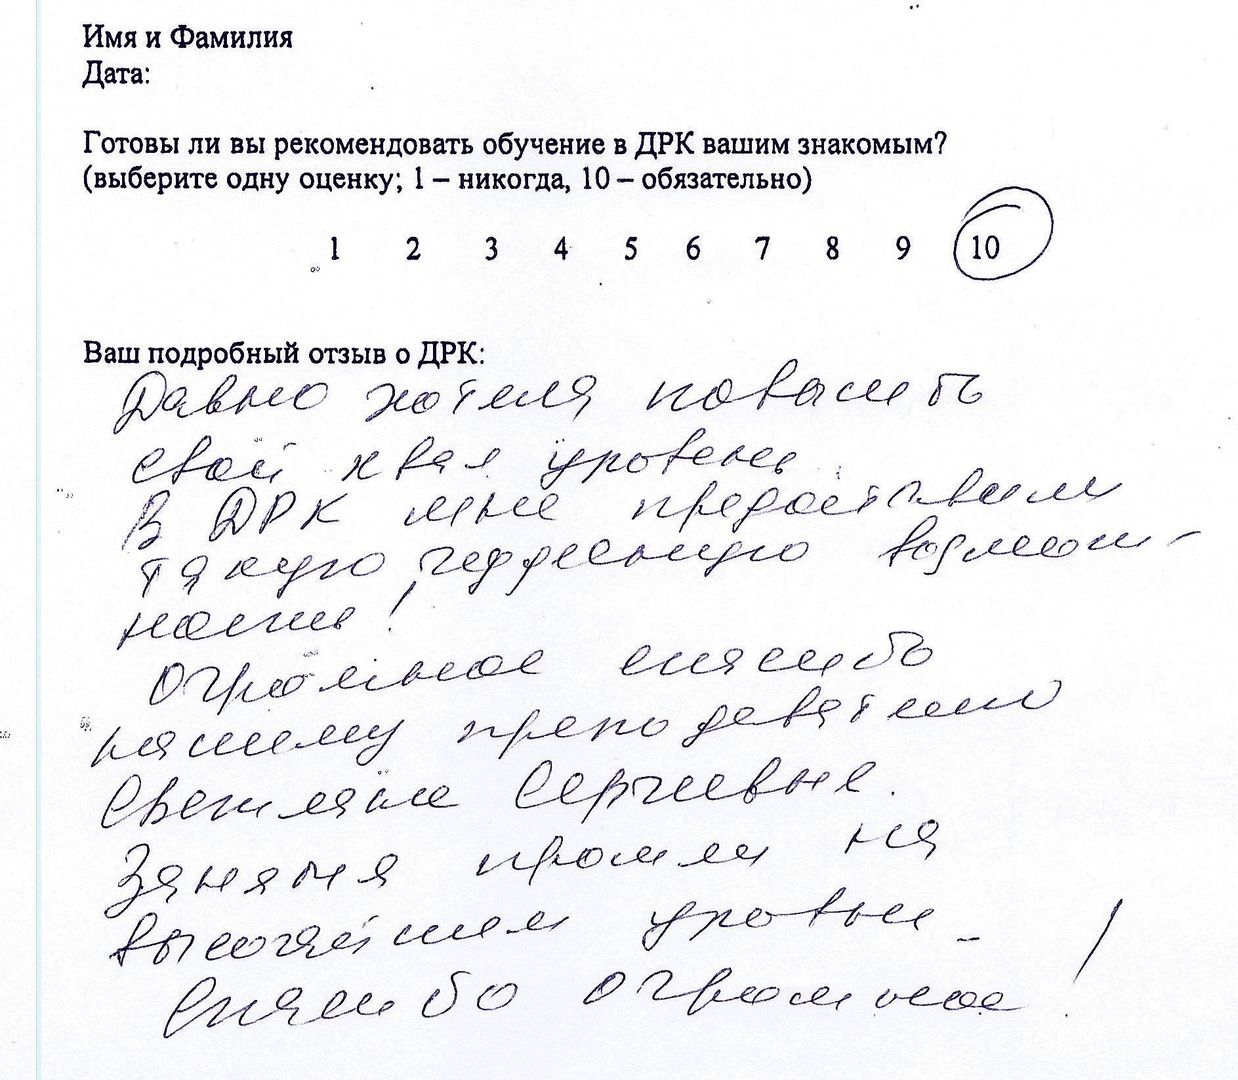 Имя и Фамилия
Дата:
Готовы ли вы рекомендовать обучение в ДРК вашим знакомым?
(выберите одну оценку; 1 – никогда, 10 – обязательно)
1 2 3 4 5 6 7 8 9 10
Ваш подробный отзыв о ДРК:
Давно хотела повысить
свой квал уровень.
В ДРК мне предоставили
такую чудесную возмож-
ность!
Огромное спасибо
нашему преподавателю
Светлане Сергеевне.
Занятия прошли на
высочайшем уровне.
Спасибо огромное!